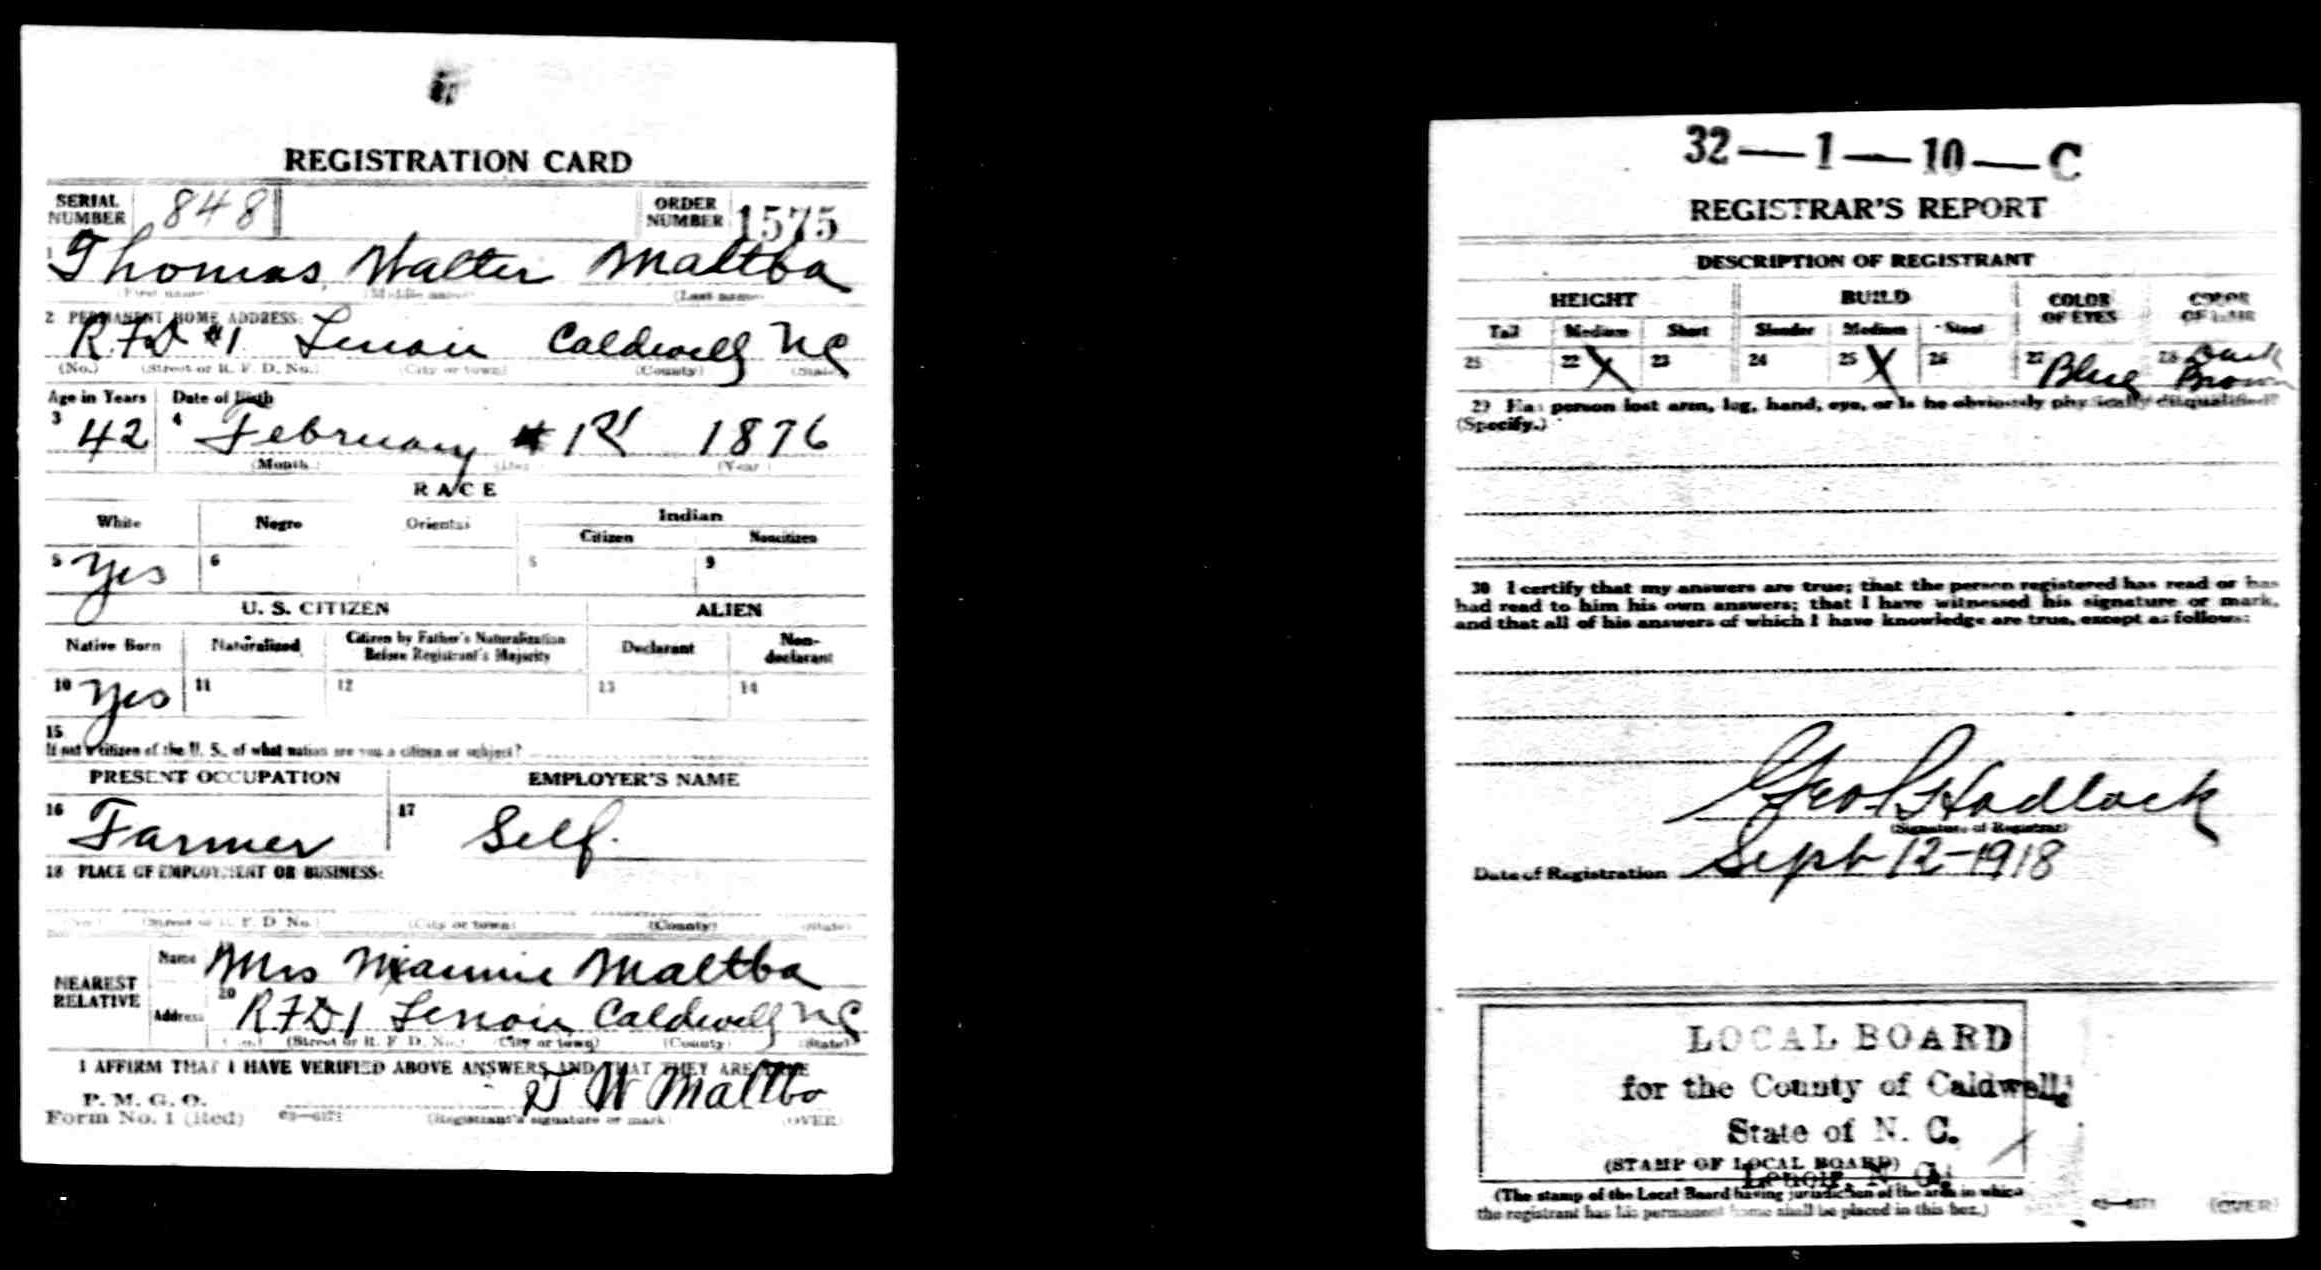 REGISTRATION CARD
SERIAL NUMBER 848 ORDER NUMBER 1575
1 Thomas Walter Maltba
(First name) (Middle name) (Last name)
2 PERMANENT HOME ADDRESS:
R.F.D #1 Lenoir Caldwell N C
(No.) (Street or R. F. D. No.) (City or town) (County) (State)
Age in Years Date of Birth
3 42 4 February 1st 1876
(Month) (Day) (Year)
RACE
White Negro Oriental Indian
Citizen Noncitizen
5 Yes 6 9
U. S. CITIZEN ALIEN
Native Born Naturalized Citizen by Father's Naturalization Before Registrant's Majority Declarant Non-declarant
10 Yes 11 12 13 14
15
If not a citizen of the U. S., of what nation are you a citizen or subject?
PRESENT OCCUPATION EMPLOYER'S NAME
16 Farmer 17 Self.
18 PLACE OF EMPLOYMENT OR BUSINESS:
(No.) (Street or R. F. D. No.) (City or town) (County) (State)
NEAREST RELATIVE Name Mrs Mannie Maltba
20 Address R.F.D 1 Lenoir Caldwell N C
(No.) (Street or R. F. D. No.) (City or town) (County) (State)
I AFFIRM THAT I HAVE VERIFIED ABOVE ANSWERS AND THAT THEY ARE TRUE
P. M. G. O.
Form No. 1 (Red) T W Maltba
(Registrant's signature or mark) (OVER)
32—1—10—C
REGISTRAR'S REPORT
DESCRIPTION OF REGISTRANT
HEIGHT BUILD COLOR OF EYES COLOR OF HAIR
Tall Medium Short Slender Medium Stout
21 22 X 23 24 25 X 26 27 Blue 28 Dark Brown
29 Has person lost arm, leg, hand, eye, or is he obviously physically disqualified?
(Specify.)
30 I certify that my answers are true; that the person registered has read or has
had read to him his own answers; that I have witnessed his signature or mark,
and that all of his answers of which I have knowledge are true, except as follows:
(Signature of Registrar)
Date of Registration Sept 12-1918
LOCAL BOARD
for the County of Caldwell
State of N. C.
(STAMP OF LOCAL BOARD)
Lenoir, N. C.
(The stamp of the Local Board having jurisdiction of the area in which
the registrant has his permanent home shall be placed in this box.)
(OVER)